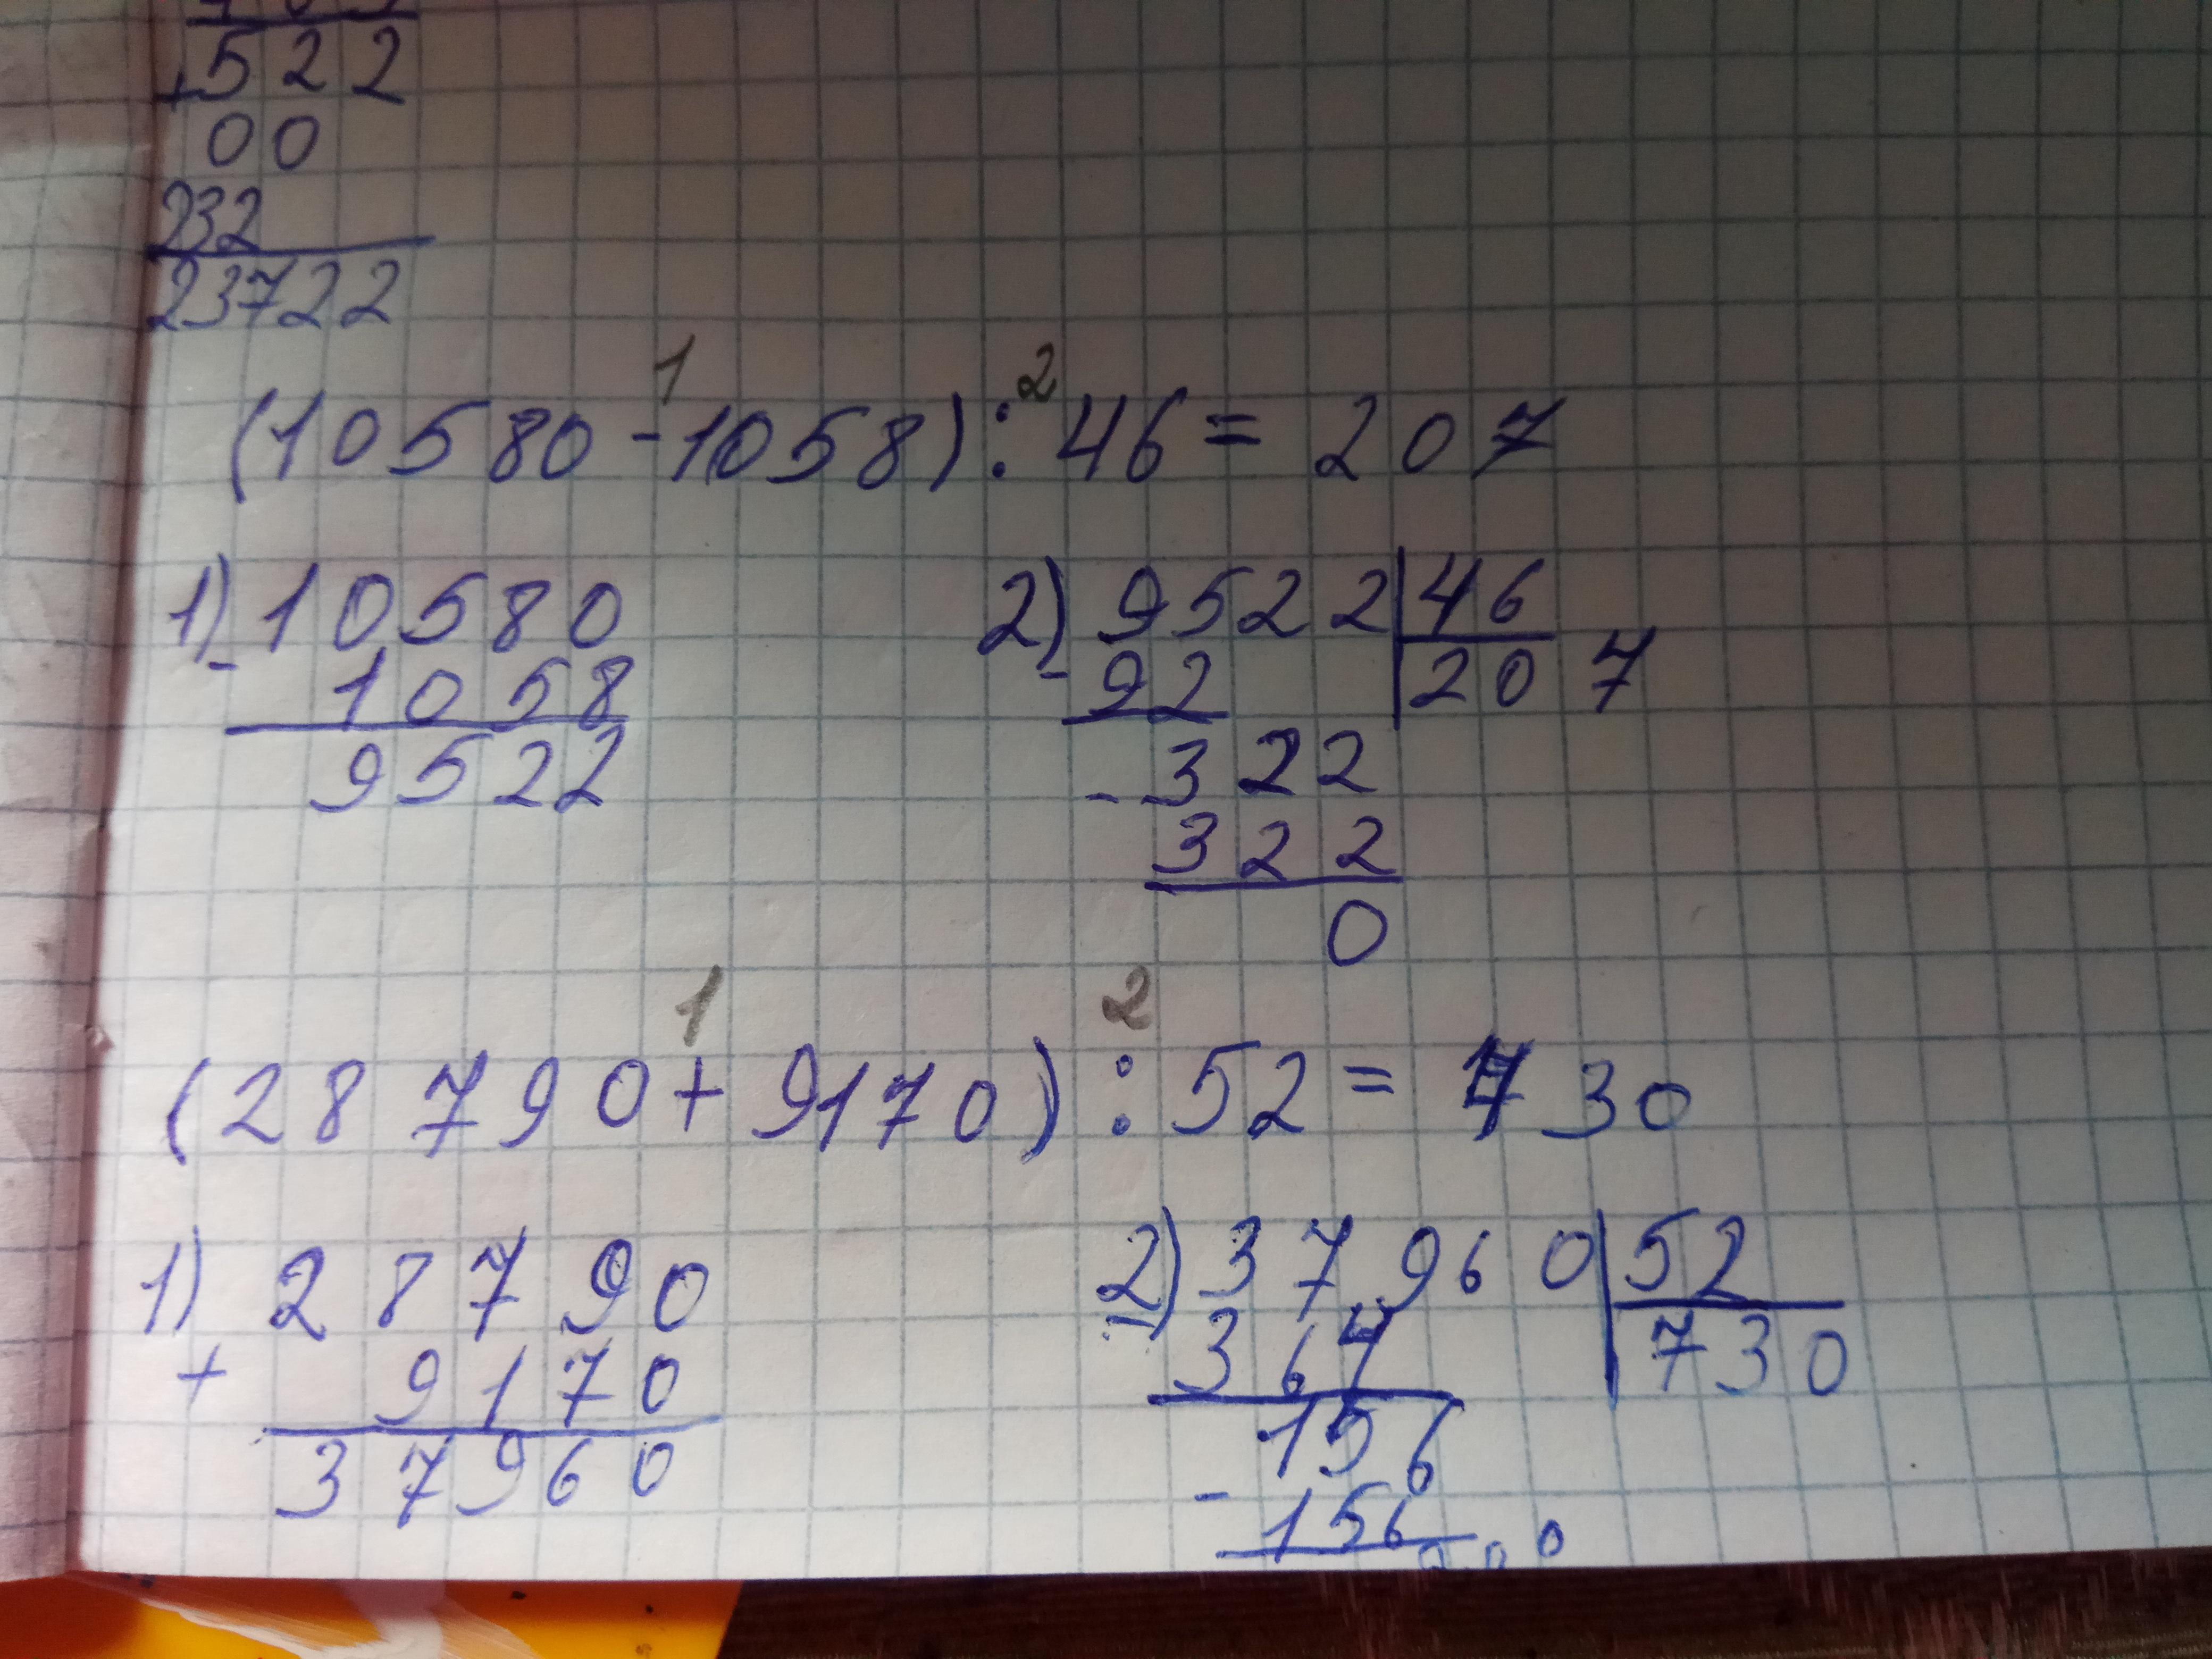 +522
00
232
23722
1 2
(10580-1058):46=207
1) 10580 2) 9522 | 46
- 1058 - 92 207
9522 - 322
322
0
1 2
(28790+9170):52=730
1) 28790 2) 37960 | 52
+ 9170 - 364 730
37960 156
- 156
0 0 0